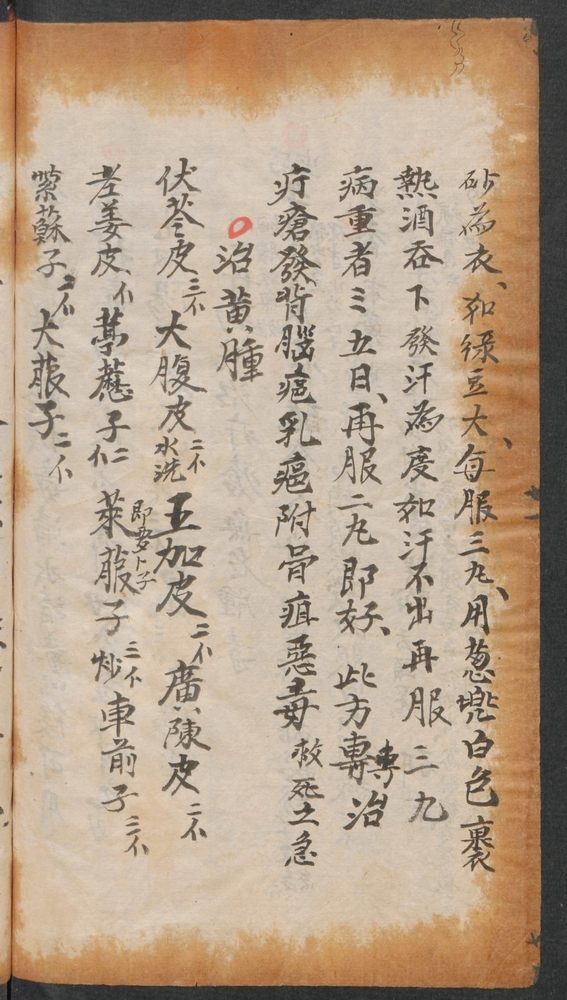 砂為衣、如綠豆大、每服三丸、用葱兠白色裹
熱酒吞下發汗為度如汗不出再服三九
病重者三五日、再服二丸即好、此方專治
專
疔瘡發背腦疽乳疽附骨疽惡毒救死之急
治黄腫
伏苓皮三不大腹皮二不水洗五加皮二不廣陳皮二不
老姜皮、不葶藶子仁萊菔子即夢卜子炒三不車前子三不
紫蘇子二不大菔子二不